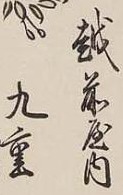 越前屋内
九重